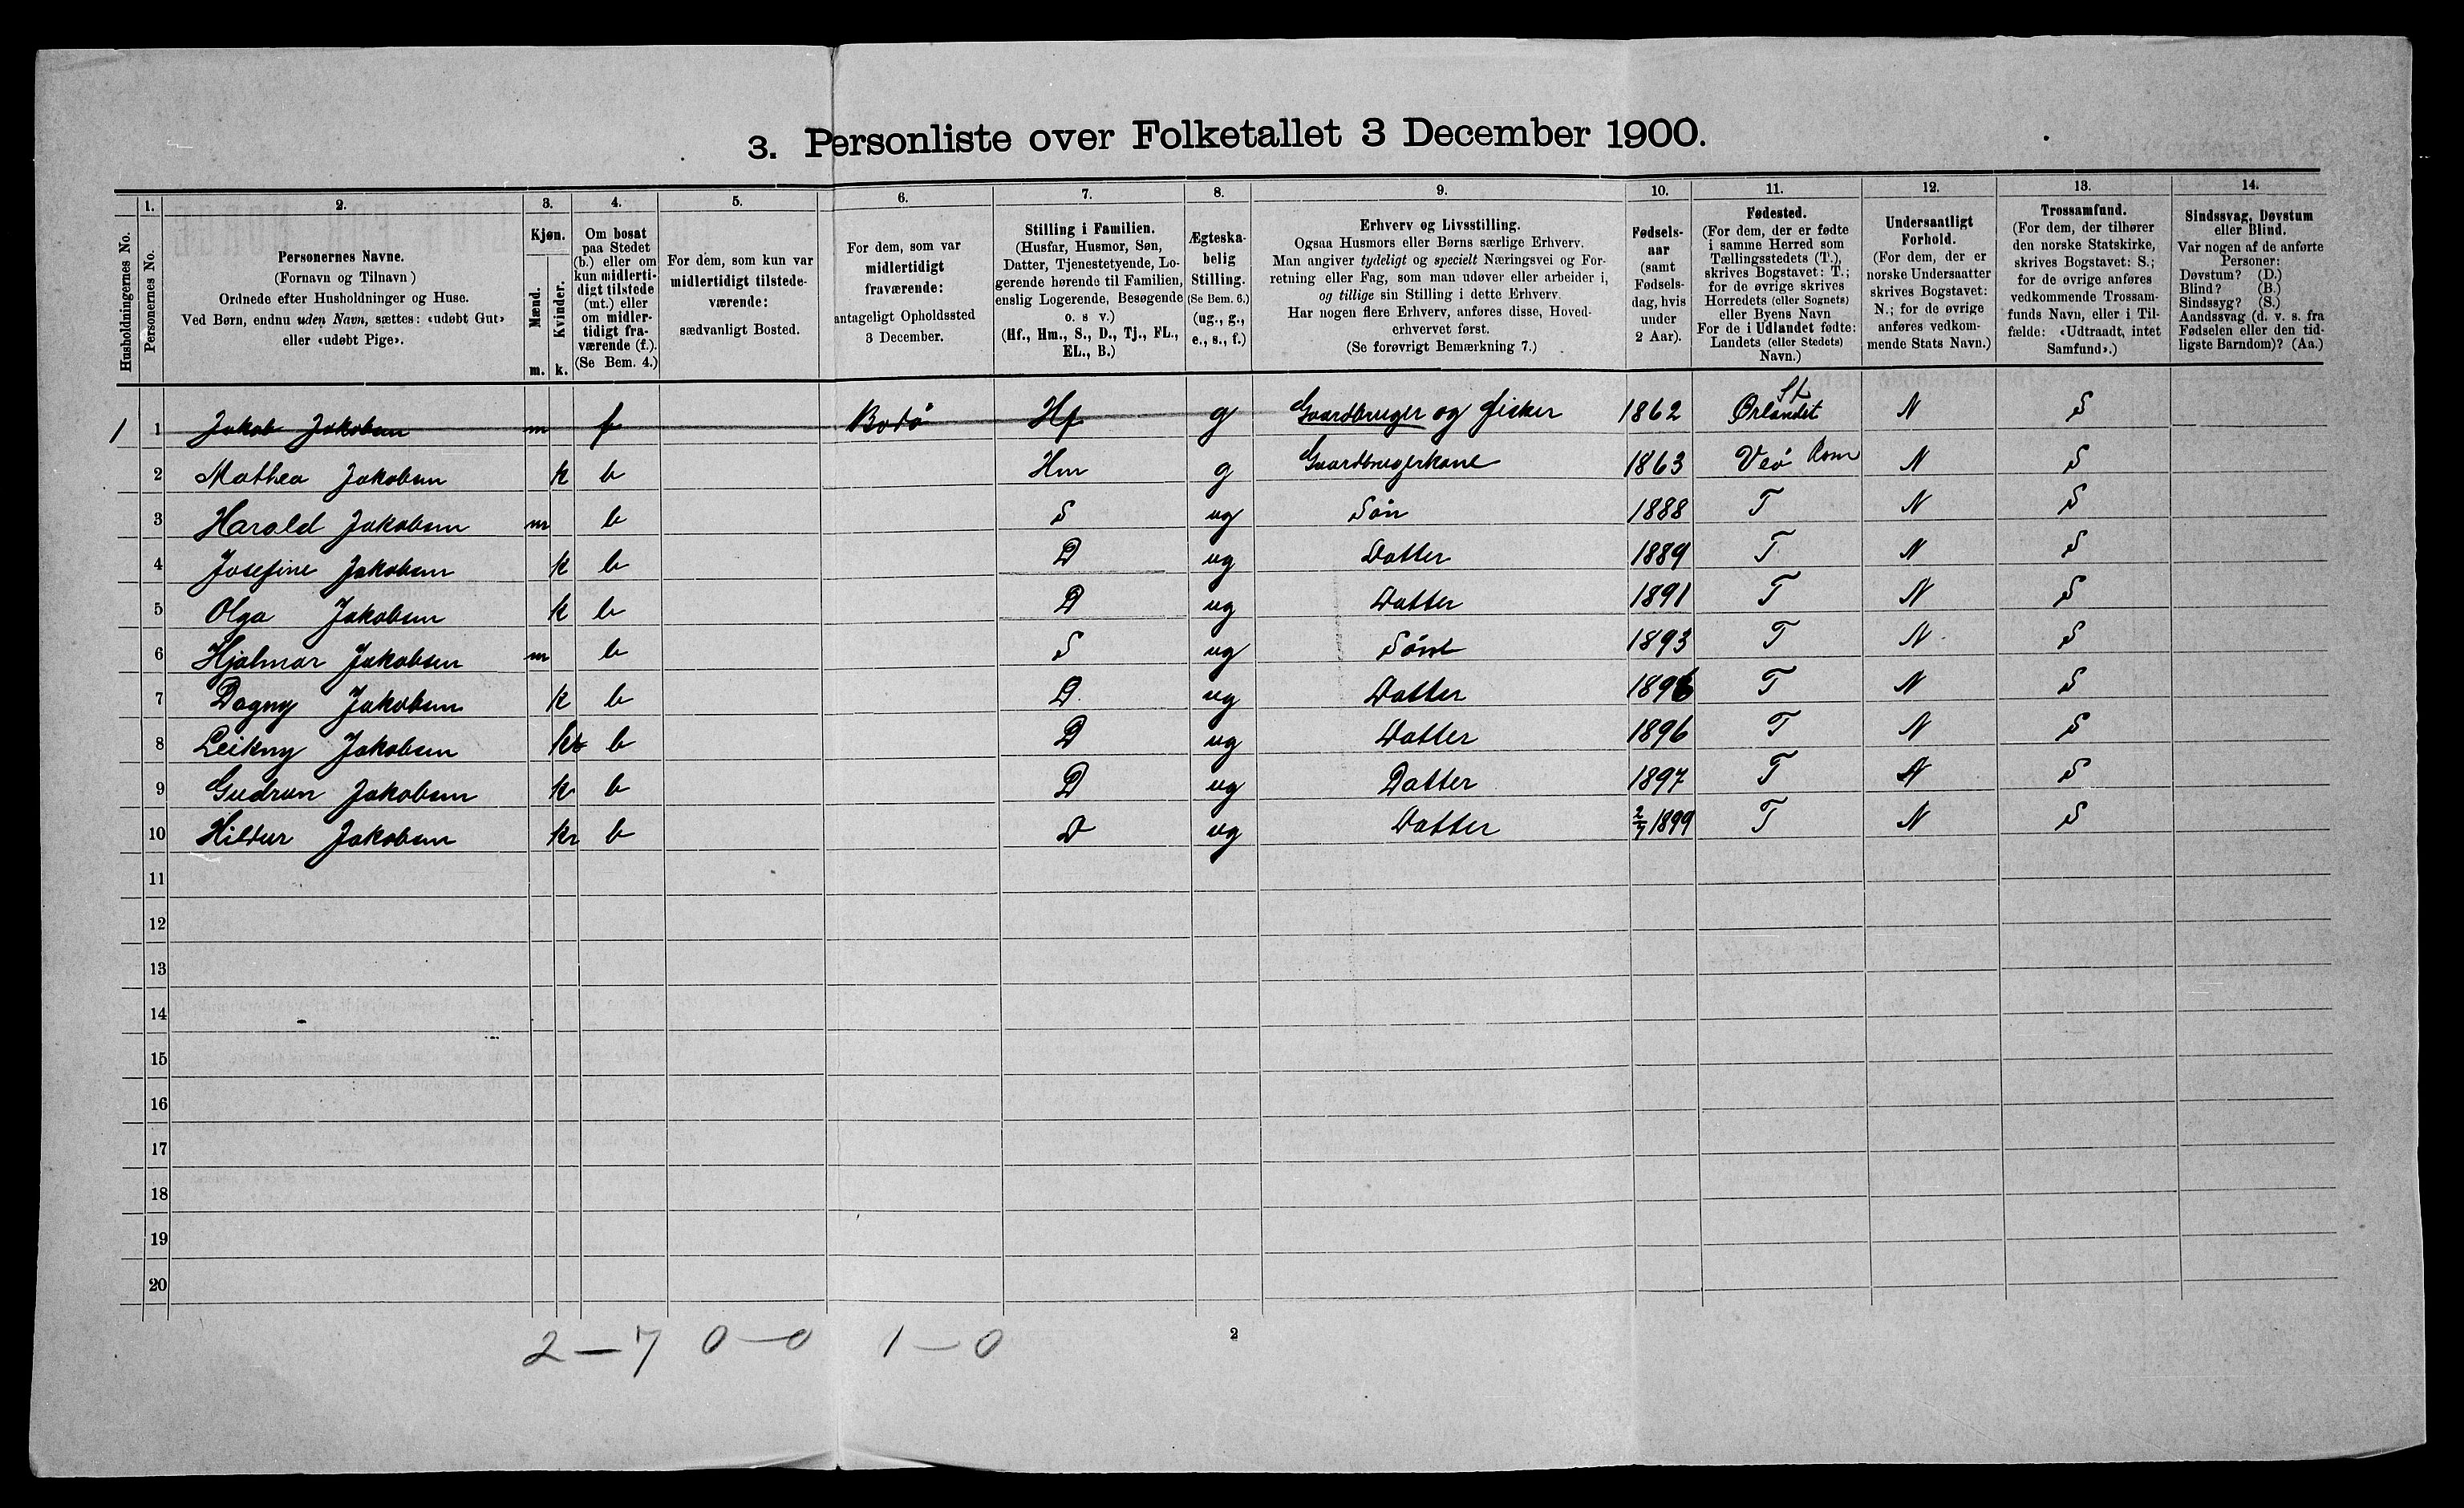 3. Personliste over Folketallet 3 December 1900.
1. 2. 3. 4. 5. 6. 7. 8. 9. 10. 11. 12. 13. 14.
Husholdningernes No.
Personernes No.
Personernes Navne.
(Fornavn og Tilnavn)
Ordnede efter Husholdninger og Huse.
Ved Børn, endnu uden Navn, sættes: «udøbt Gut»
eller «udøbt Pige».
Kjøn.
Mænd.
Kvinder.
m. k.
Om bosat
paa Stedet
(b.) eller om
kun midlerti-
digt tilstede
(mt.) eller
om midler-
tidigt fra-
værende (f.).
(Se Bem. 4.)
For dem, som kun var
midlertidigt tilstede-
værende:
sædvanligt Bosted.
For dem, som var
midlertidigt
fraværende:
antageligt Opholdssted
3 December.
Stilling i Familien.
(Husfar, Husmor, Søn,
Datter, Tjenestetyende, Lo-
gerende hørende til Familien,
enslig Logerende, Besøgende
o. s v.)
(Hf., Hm., S., D., Tj., FL.,
EL., B.)
Ægteska-
belig
Stilling.
(Se Bem. 6.)
(ug., g.,
e., s., f.)
Erhverv og Livsstilling.
Ogsaa Husmors eller Børns særlige Erhverv.
Man angiver tydeligt og specielt Næringsvei og For-
retning eller Fag, som man udøver eller arbeider i,
og tillige sin Stilling i dette Erhverv.
Har nogen flere Erhverv, anføres disse, Hoved-
erhvervet først.
(Se forøvrigt Bemærkning 7.)
Fødsels-
aar
(samt
Fødsels-
dag, hvis
under
2 Aar).
Fødested.
(For dem, der er fødte
i samme Herred som
Tællingsstedets (T.),
skrives Bogstavet: T.;
for de øvrige skrives
Herredets (eller Sognets)
eller Byens Navn
For de i Udlandet fødte:
Landets (eller Stedets)
Navn.)
Undersaatligt
Forhold.
(For dem, der er
norske Undersaatter
skrives Bogstavet:
N.; for de øvrige
anføres vedkom-
mende Stats Navn.)
Trossamfund.
(For dem, der tilhører
den norske Statskirke,
skrives Bogstavet: S.;
for de øvrige anføres
vedkommende Trossam-
funds Navn, eller i Til-
fælde: «Udtraadt, intet
Samfund».)
Sindssvag, Døvstum
eller Blind.
Var nogen af de anførte
Personer:
Døvstum? (D.)
Blind? (B.)
Sindssyg? (S.)
Aandssvag (d. v. s. fra
Fødselen eller den tid-
ligste Barndom)? (Aa.)
1 1 Jakob Jakobsen m f Bodö Hf g Gaardbruger og fisker 1862 Ørlandet St N S
2 Mathea Jakobsen k b Hm g Gaardbrugerkone 1863 Veö Rom N S
3 Harald Jakobsen m b S ug Sön 1888 T N S
4 Josefine Jakobsen k b D ug Datter 1889 T N S
5 Olga Jakobsen k b D ug Datter 1891 T N S
6 Hjalmar Jakobsen m b S ug Sön 1893 T N S
7 Dagny Jakobsen k b D ug Datter 1896 T N S
8 Leikny Jakobsen k b D ug Datter 1896 T N S
9 Gudrun Jakobsen k b D ug Datter 1897 T N S
10 Hildur Jakobsen k b D ug Datter 2/7 1899 T N S
11
12
13
14
15
16
17
18
19
20
2–7 0–0 1–0
2